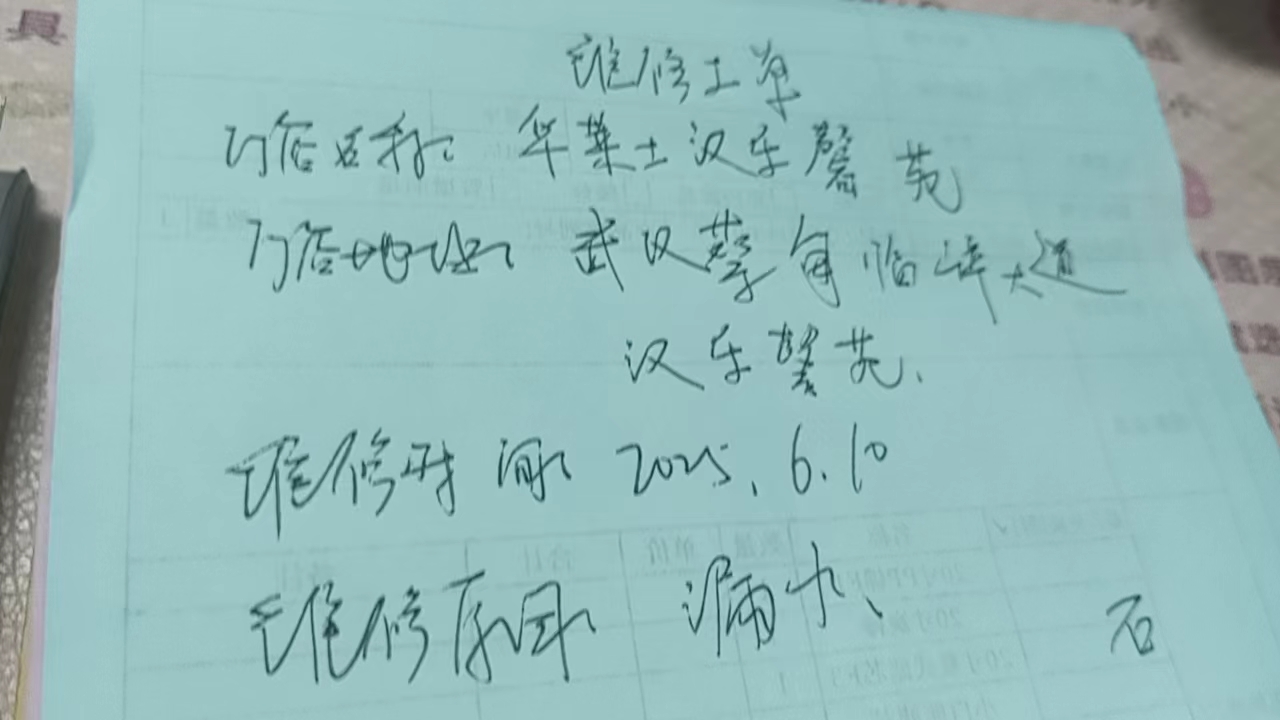 维修工单
门店名称: 华莱士汉乐馨苑
门店地址: 武汉蔡甸临嶂大道
汉乐馨苑.
维修时间: 2025.6.10
维修原因: 漏水、
石
名称
数量
单价
合计